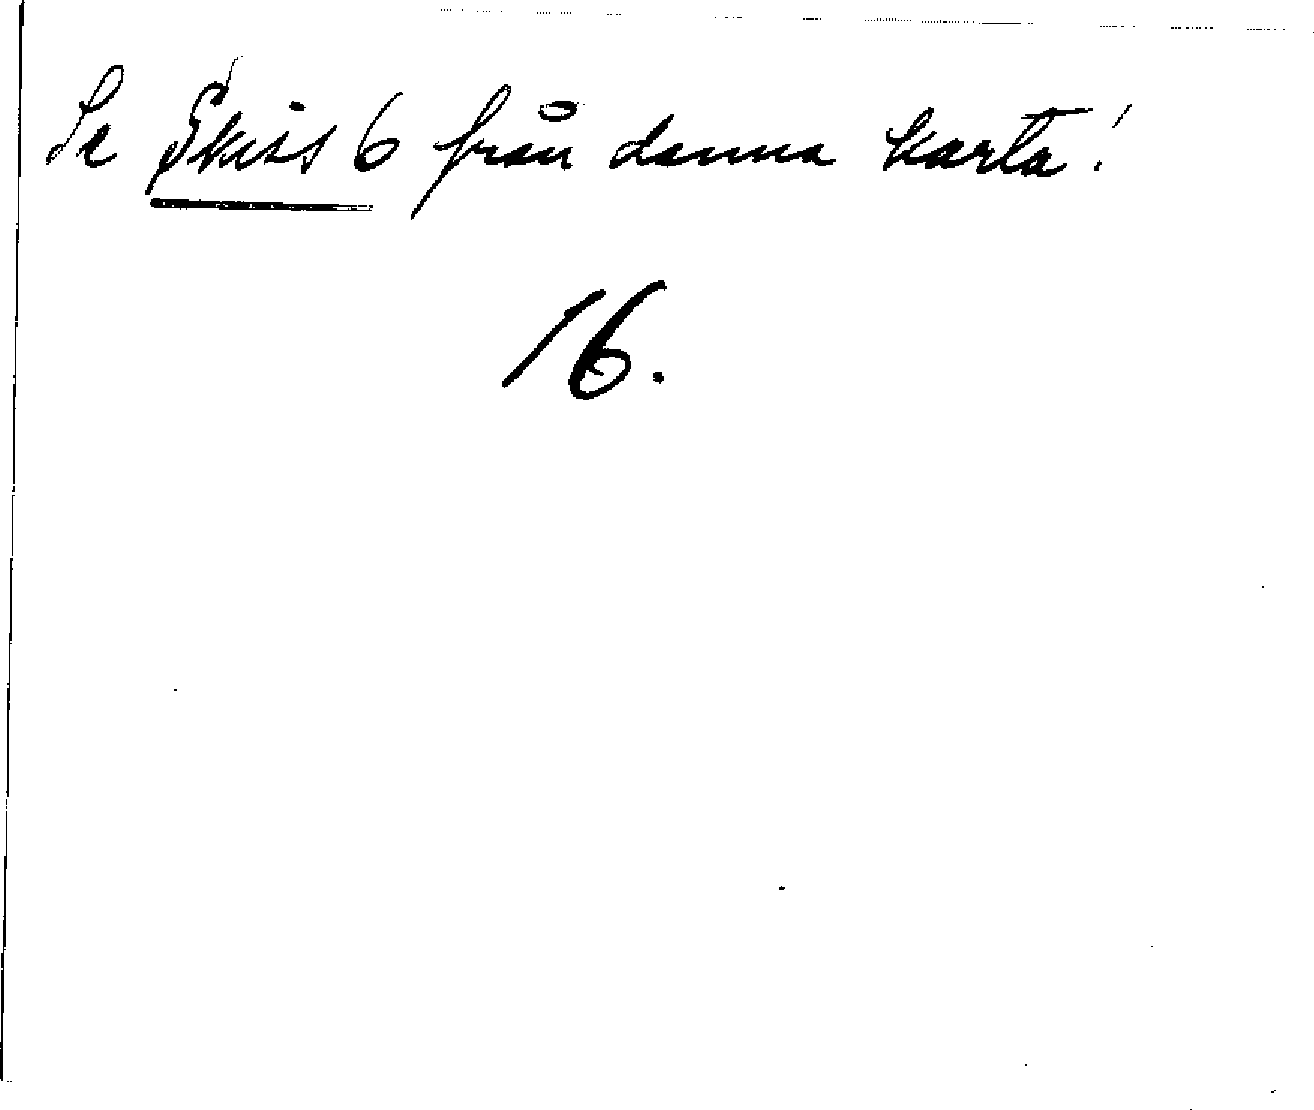 Se Skiss 6 från denna karta!
16.